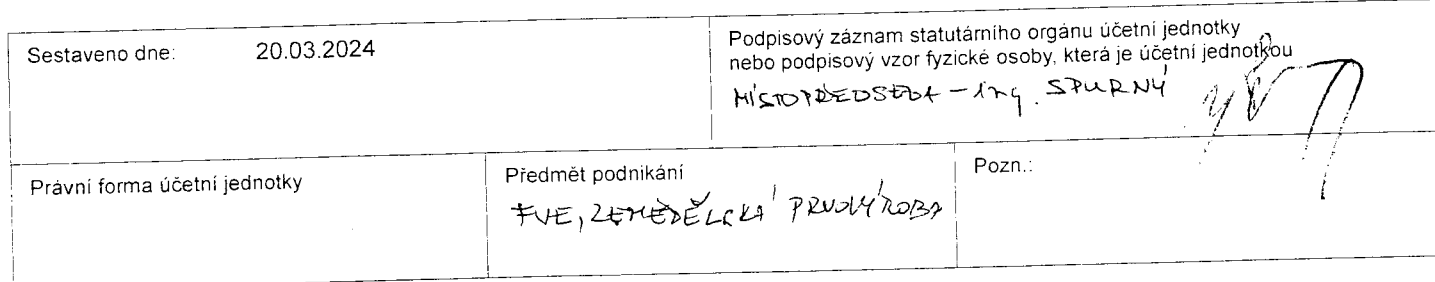 Sestaveno dne: 20.03.2024
Podpisový záznam statutárního orgánu účetní jednotky
nebo podpisový vzor fyzické osoby, která je účetní jednotkou
MÍSTOPŘEDSEDA - ing. SPURNÝ
Právní forma účetní jednotky
Předmět podnikání
FVE, ZEMĚDĚLSKÁ PRVOVÝROBA
Pozn.: